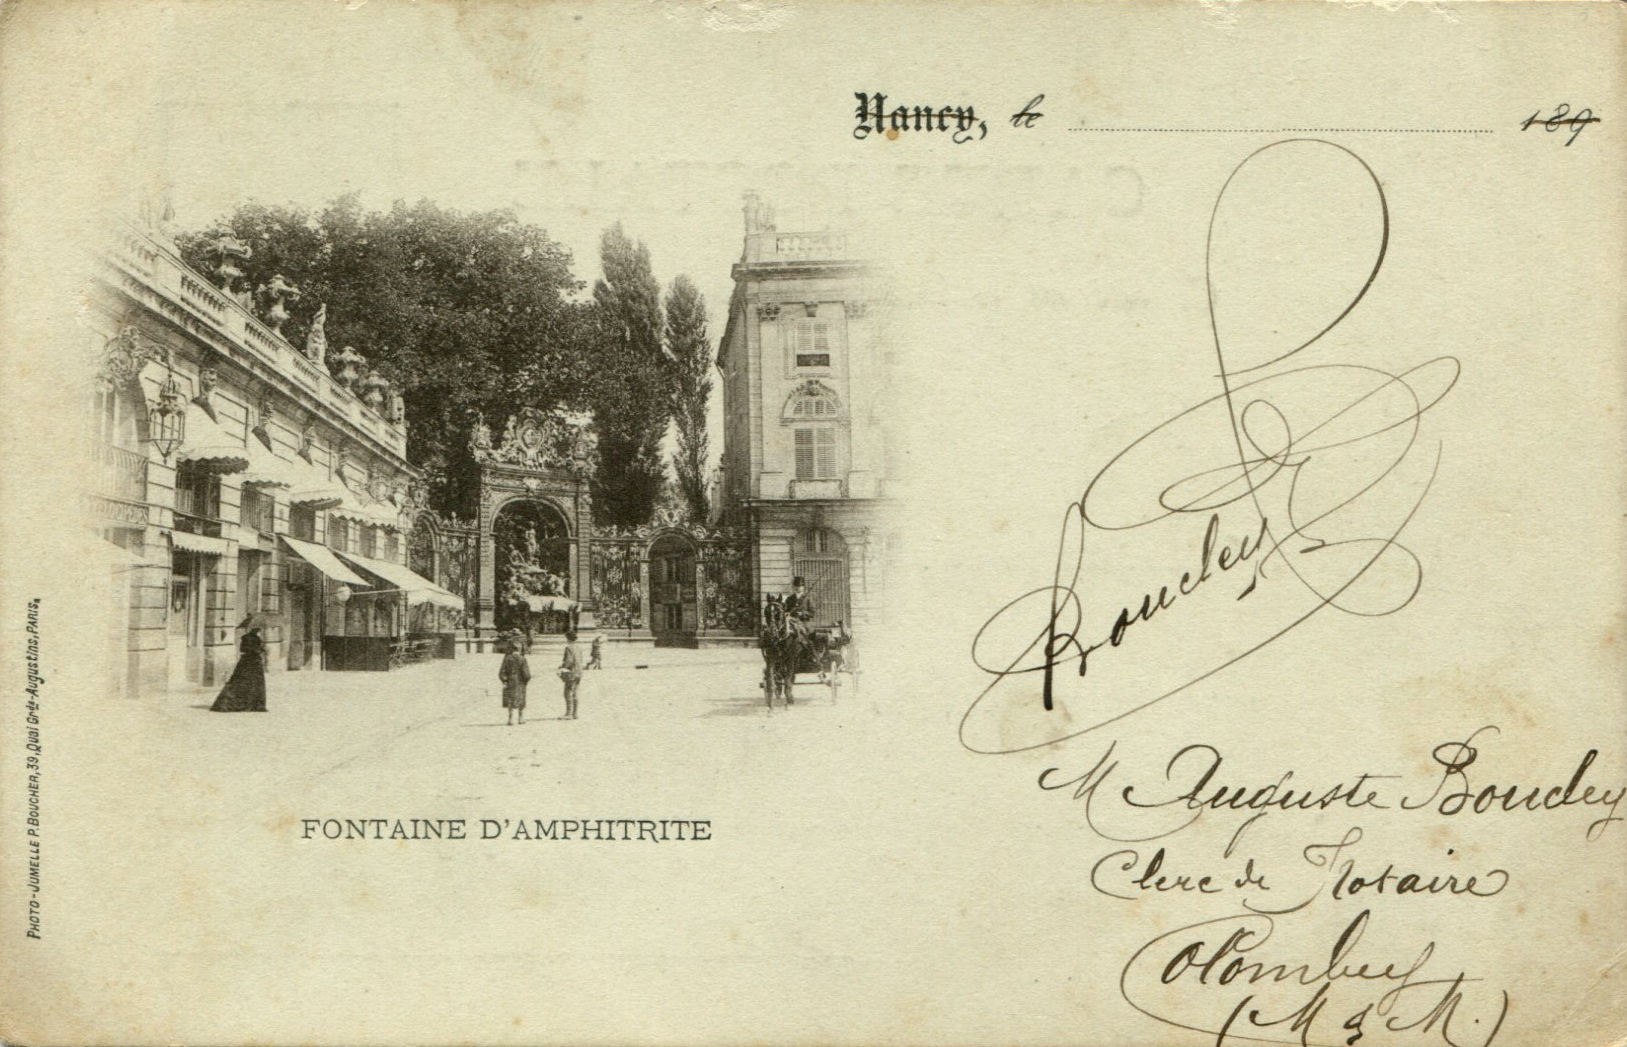 Nancy, le 189
Boudey
M Auguste Boudey
Clerc de Notaire
Colombey
(M & M.)
FONTAINE D'AMPHITRITE
PHOTO-JUMELLE P. BOUCHER, 39, Quai Grds-Augustins, PARIS.